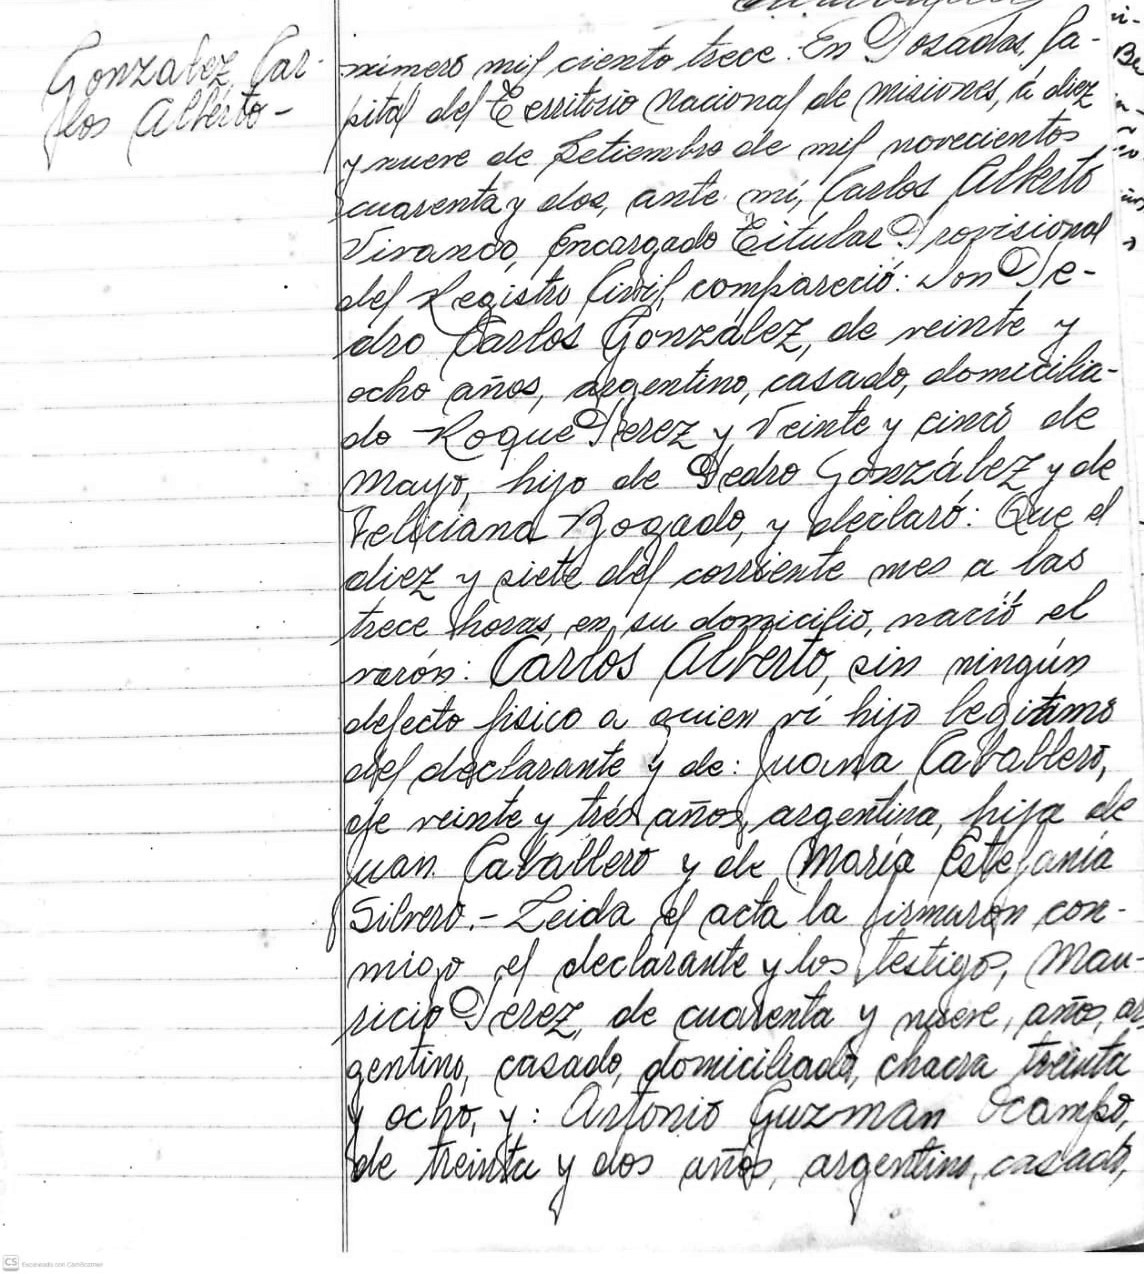 Gonzalez Car-
los Alberto -
número mil ciento trece. En Posadas, Ca-
pital del Territorio Nacional de misiones, á diez
y nueve de Setiembre de mil novecientos
cuarenta y dos, ante mí, Carlos Alberto
Vivanco, Encargado Titular Provisional
del Registro Civil, compareció: Don Pe-
dro Carlos González, de veinte y
ocho años, argentino, casado, domicilia-
do Roque Perez y Veinte y cinco de
Mayo, hijo de Pedro González y de
Feliciana Bogado, y declaró: Que el
diez y siete del corriente mes a las
trece horas, en su domicilio, nació el
varón: Carlos Alberto, sin ningún
defecto fisico a quien ví hijo legitimo
del declarante y de: Juana Caballero,
de veinte y trés años, argentina, hija de
Juan Caballero y de María Estefania
Silvero.- Leida el acta la firmaron con-
migo el declarante y los testigos, Mau-
ricio Perez, de cuarenta y nueve, años, ar
gentino, casado, domiciliado, chacra treinta
y ocho, y: Antonio Guzman Ocampo,
de treinta y dos años, argentino, casado,
CS Escaneado con CamScanner